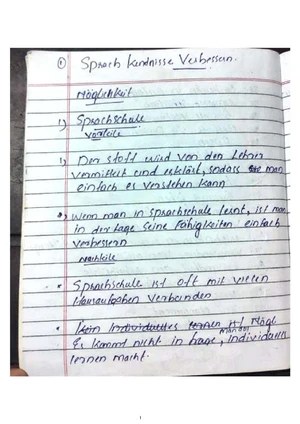 ① Sprach kendnisse Verbessern.
Möglichkeit
1) Sprachschule
Vorteile
1) Der stoff wird von den Lehrer
vermittelt und erklärt, sodass man
einfach es verstehen kann
2) Wenn man in sprachschule lernt, ist man
in der Lage seine Fähigkeiten einfach
verbessern
Nachteile
• Sprachschule ist oft mit vielen
Hausaufgaben verbunden
• Kein Individuelles lernen ist Mögl
Es kommt nicht in frage, individuells
lernen macht.
1